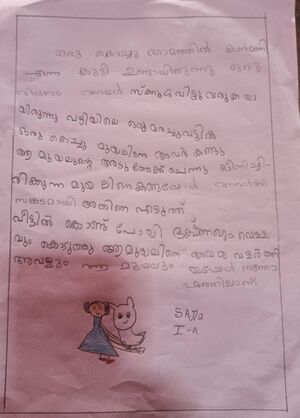 ഒരു കൊച്ചു ഗ്രാമത്തിൽ കൺമണി
എന്ന കുട്ടി ഉണ്ടായിരുന്നു ഒരു
ദിവസം അവൾ സ്കൂൾ വിട്ടു വരുക യാ
യിരുന്നു വഴിയിലെ ഒരു മരച്ചുവട്ടിൽ
ഒരു കൊച്ചു മുയലിനെ അവൾ കണ്ടു
ആ മുയലുന്റെ അടു ത്തേക്ക് ചെന്നു
രിക്കുന്ന മുയ ലിനെ കണ്ടപ്പോൾ അവൾക്ക്
സങ്കടമായി അതിനെ എടുത്ത്
വീട്ടിൽ കൊണ്ട് പോയി ഭക്ഷണവും വെള്ള
വും കൊടുത്തു ആ മുയലിനെ അവൾ വളർത്തി
അവളും ആ മുയലും ഇപ്പോൾ നല്ലാ
ഷത്തിലാണ്
SAJJa
I-A